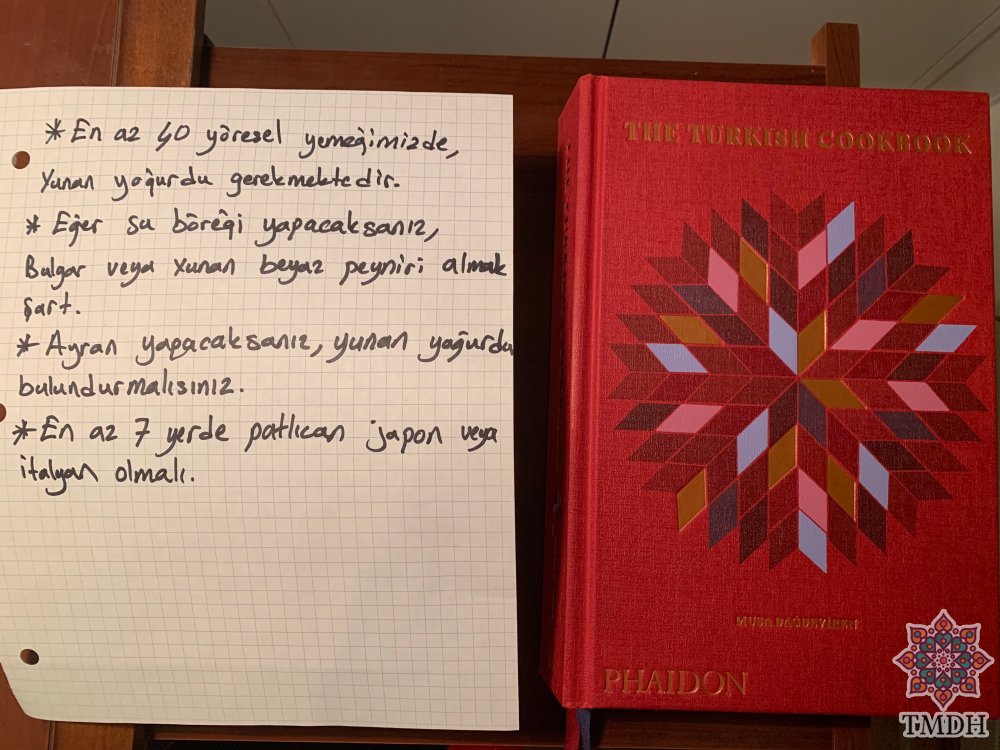 *En az 40 yöresel yemeğimizde,
Yunan yoğurdu gerekmektedir.
* Eğer su böreği yapacaksanız,
Bulgar veya Yunan beyaz peyniri almak
şart.
* Ayran yapacaksanız, yunan yağurdu
bulundurmalısınız.
*En az 7 yerde patlıcan japon veya
italyan olmalı.
THE TURKISH COOKBOOK
MUSA DAĞDEVİREN
PHAIDON
TMDH